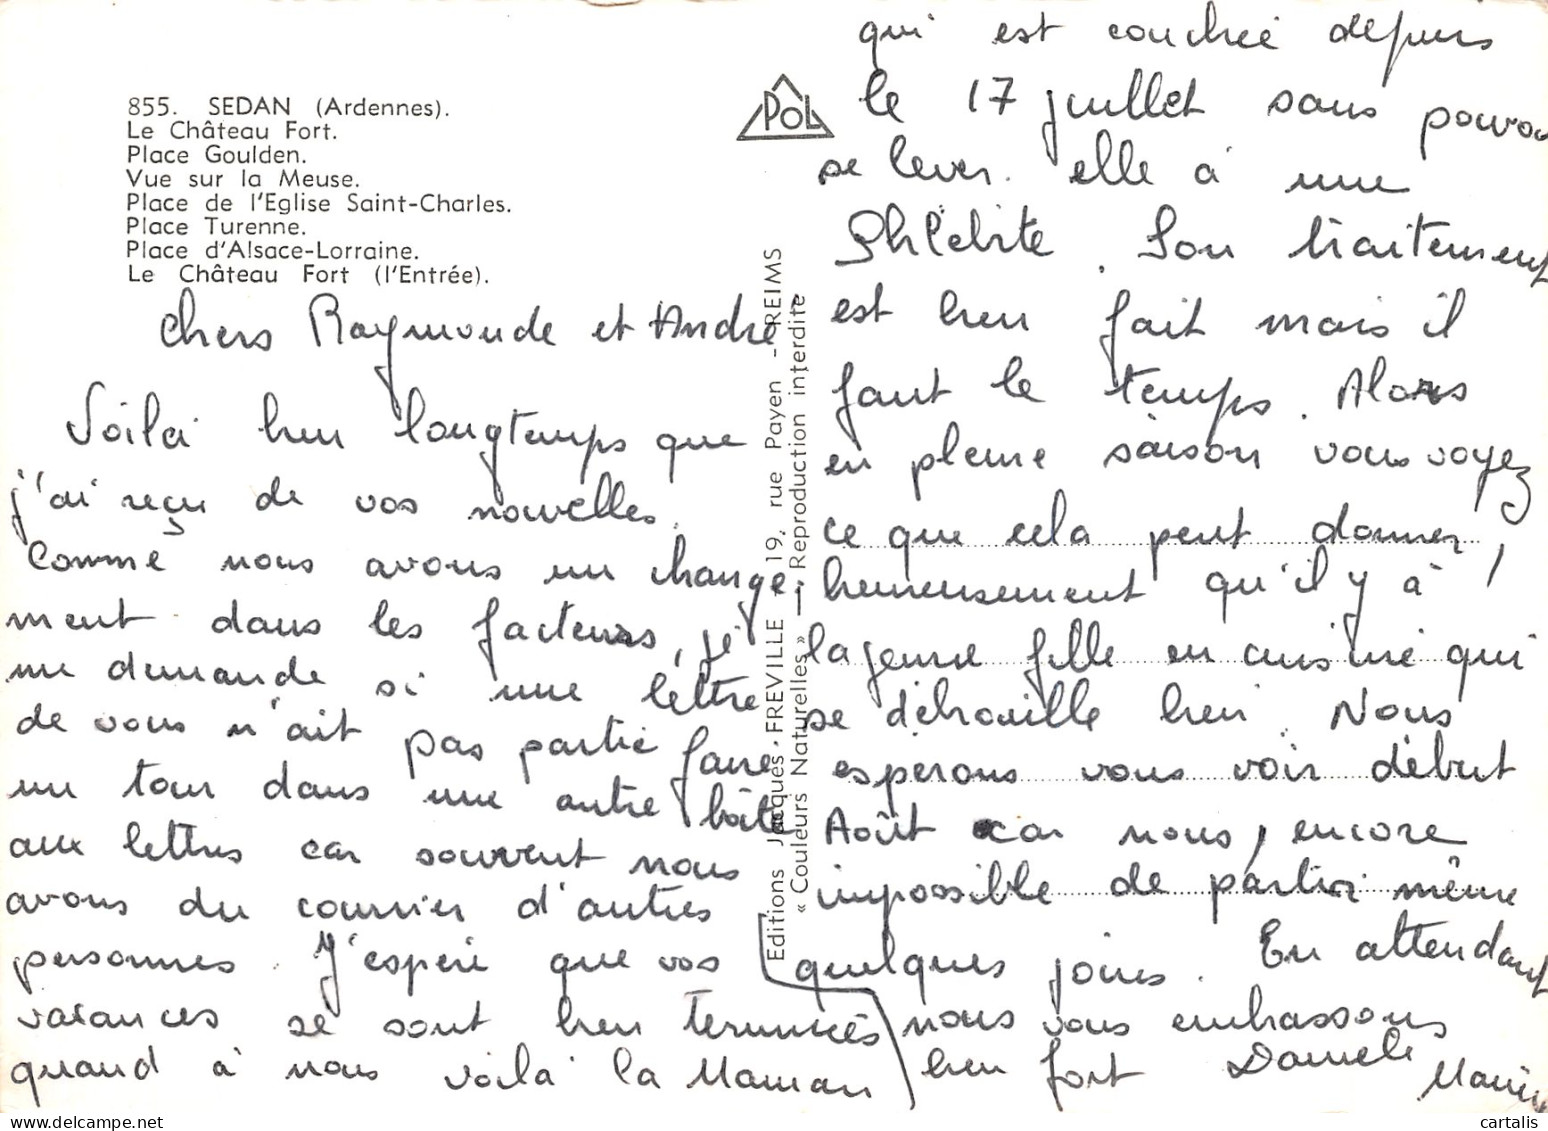 855. SEDAN (Ardennes).
Le Château Fort.
Place Goulden.
Vue sur la Meuse.
Place de l'Eglise Saint-Charles.
Place Turenne.
Place d'Alsace-Lorraine.
Le Château Fort (l'Entrée).
POL
Editions Jacques FREVILLE 19, rue Payen - REIMS
« Couleurs Naturelles » — Reproduction interdite
Chers Raymonde et André
Voilà bien longtemps que
j'ai reçu de vos nouvelles.
Comme nous avons un change
ment dans les facteurs, je
me demande si une lettre
de vous n'ait pas partie faire
un tour dans une autre boîte
aux lettres car souvent nous
avons du courrier d'autres
personnes. J'espère que vos
vacances se sont bien terminées
quand à nous voilà la Maman
qui est couchée depuis
le 17 juillet sans pouvoi
se lever. elle à une
Phlébite. Son traitement
est bien fait mais il
faut le temps. Alors
en pleine saison vous voyez
ce que cela peut donner
heureusement qu'il y à !
la jeune fille en cuisine qui
se débrouille bien. Nous
esperons vous voir début
Août car nous, encore
impossible de partir même
quelques jours. En attendant
nous vous embrassons
bien fort Daniele